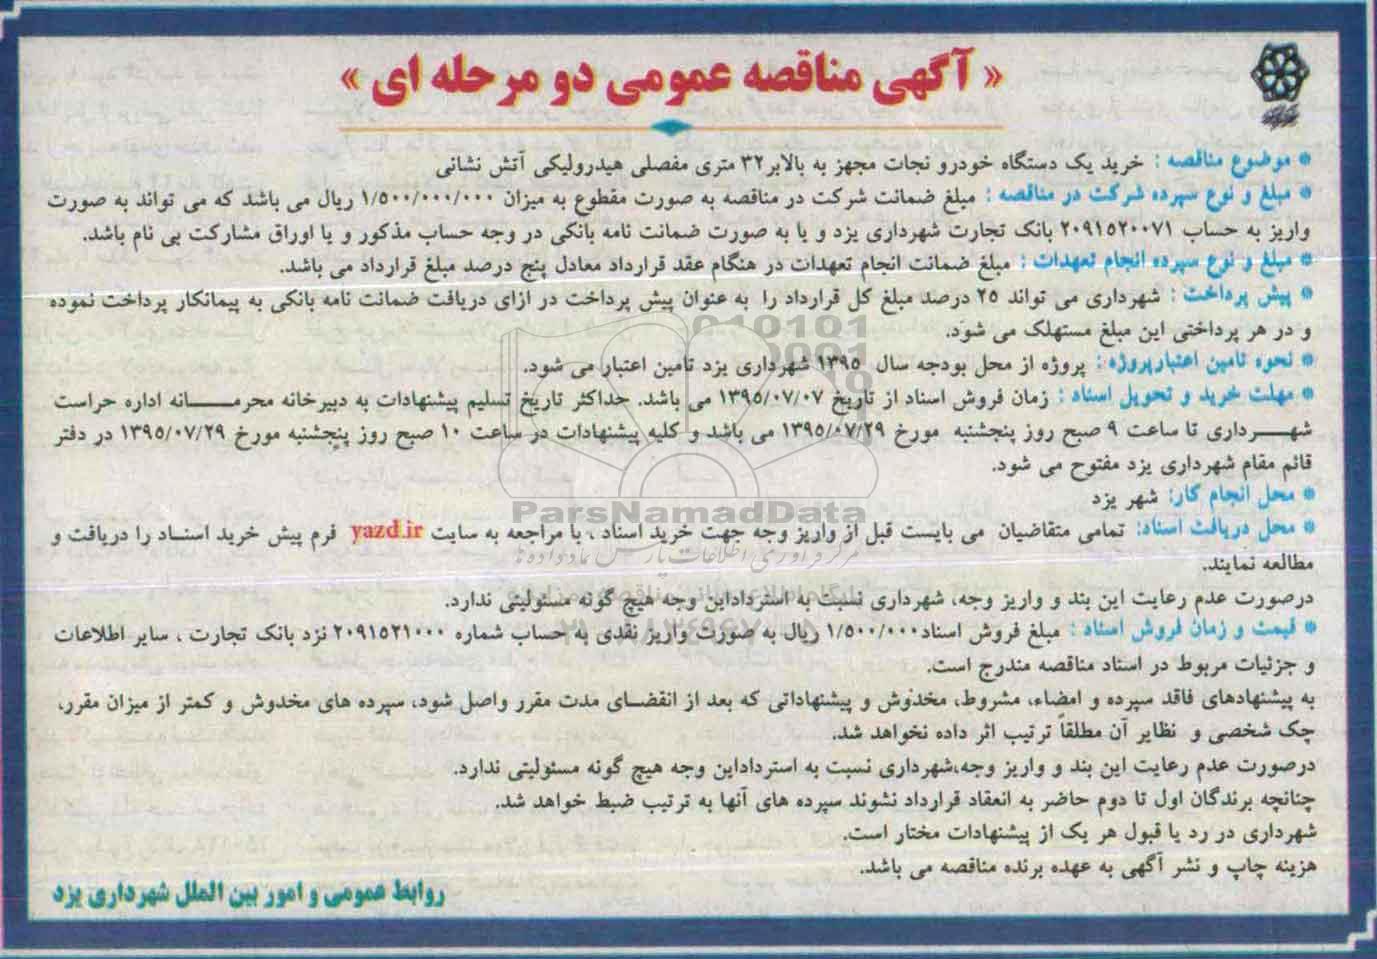 « آگهی مناقصه عمومی دو مرحله ای »
* موضوع مناقصه : خرید یک دستگاه خودرو نجات مجهز به بالابر۳۲ متری مفصلی هیدرولیکی آتش نشانی
* مبلغ و نوع سپرده شرکت در مناقصه : مبلغ ضمانت شرکت در مناقصه به صورت مقطوع به میزان ۱/۵۰۰/۰۰۰/۰۰۰ ریال می باشد که می تواند به صورت
واریز به حساب ۲۰۹۱۵۲۰۰۷۱ بانک تجارت شهرداری یزد و یا به صورت ضمانت نامه بانکی در وجه حساب مذکور و یا اوراق مشارکت بی نام باشد.
* مبلغ و نوع سپرده انجام تعهدات : مبلغ ضمانت انجام تعهدات در هنگام عقد قرارداد معادل پنج درصد مبلغ قرارداد می باشد.
* پیش پرداخت : شهرداری می تواند ۲۵ درصد مبلغ کل قرارداد را به عنوان پیش پرداخت در ازای دریافت ضمانت نامه بانکی به پیمانکار پرداخت نموده
و در هر پرداختی این مبلغ مستهلک می شود.
* نحوه تامین اعتبارپروژه : پروژه از محل بودجه سال ۱۳۹۵ شهرداری یزد تامین اعتبار می شود.
* مهلت خرید و تحویل اسناد : زمان فروش اسناد از تاریخ ۱۳۹۵/۰۷/۰۷ می باشد. حداکثر تاریخ تسلیم پیشنهادات به دبیرخانه محرمـــــانه اداره حراست
شهـــرداری تا ساعت ۹ صبح روز پنجشنبه مورخ ۱۳۹۵/۰۷/۲۹ می باشد و کلیه پیشنهادات در ساعت ۱۰ صبح روز پنجشنبه مورخ ۱۳۹۵/۰۷/۲۹ در دفتر
قائم مقام شهرداری یزد مفتوح می شود.
* محل انجام کار: شهر یزد
* محل دریافت اسناد: تمامی متقاضیان می بایست قبل از واریز وجه جهت خرید اسناد ، با مراجعه به سایت yazd.ir فرم پیش خرید اسنـاد را دریافت و
مطالعه نمایند.
درصورت عدم رعایت این بند و واریز وجه، شهرداری نسبت به استرداداین وجه هیچ گونه مسئولیتی ندارد.
* قیمت و زمان فروش اسناد : مبلغ فروش اسناد۱/۵۰۰/۰۰۰ ریال به صورت واریز نقدی به حساب شماره ۲۰۹۱۵۲۱۰۰۰ نزد بانک تجارت ، سایر اطلاعات
و جزئیات مربوط در اسناد مناقصه مندرج است.
به پیشنهادهای فاقد سپرده و امضاء، مشروط، مخدوش و پیشنهاداتی که بعد از انقضـای مدت مقرر واصل شود، سپرده های مخدوش و کمتر از میزان مقرر،
چک شخصی و نظایر آن مطلقاً ترتیب اثر داده نخواهد شد.
درصورت عدم رعایت این بند و واریز وجه،شهرداری نسبت به استرداداین وجه هیچ گونه مسئولیتی ندارد.
چنانچه برندگان اول تا دوم حاضر به انعقاد قرارداد نشوند سپرده های آنها به ترتیب ضبط خواهد شد.
شهرداری در رد یا قبول هر یک از پیشنهادات مختار است.
هزینه چاپ و نشر آگهی به عهده برنده مناقصه می باشد.
روابط عمومی و امور بین الملل شهرداری یزد
ParsNamadData